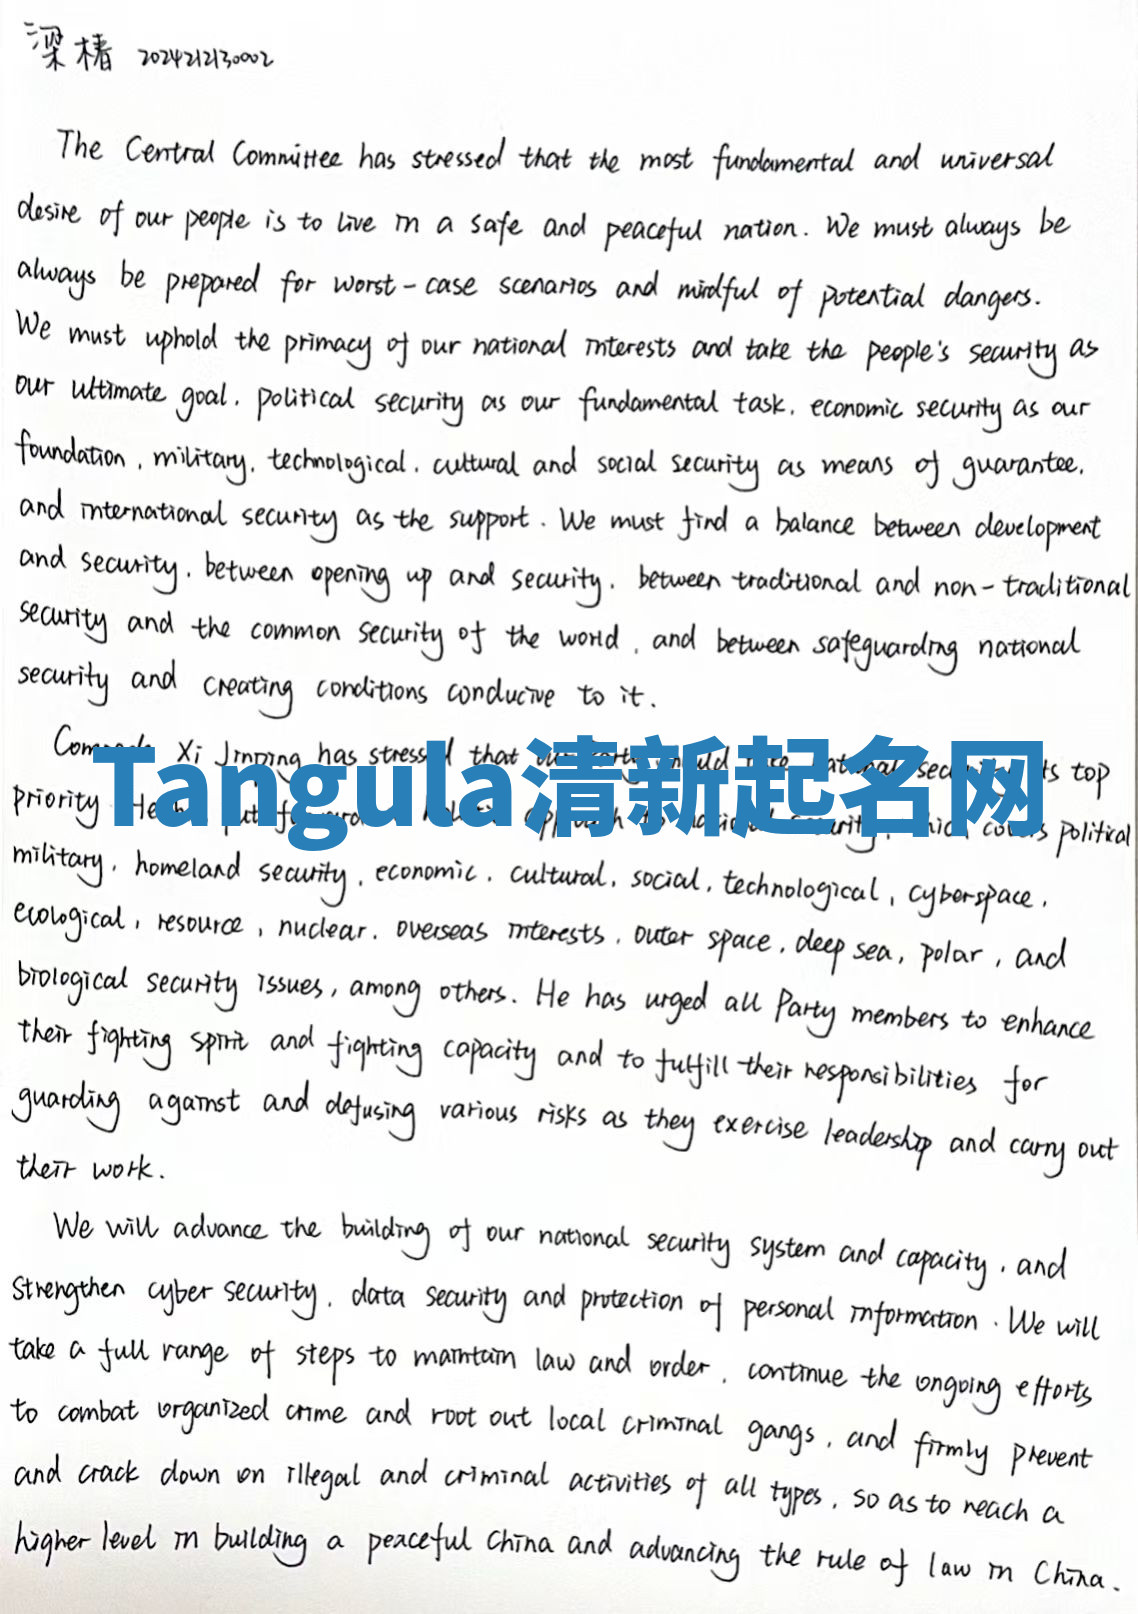 梁椿 2024212130002
The Central Committee has stressed that the most fundamental and universal
desire of our people is to live in a safe and peaceful nation. We must always be
always be prepared for worst-case scenarios and mindful of potential dangers.
We must uphold the primacy of our national interests and take the people's security as
our ultimate goal, political security as our fundamental task, economic security as our
foundation, military, technological, cultural and social security as means of guarantee,
and international security as the support. We must find a balance between development
and security, between opening up and security, between traditional and non-traditional
security and the common security of the world, and between safeguarding national
security and creating conditions conducive to it.
Xi Jinping has stressed that security its top
Tangula清新起名网
priority put security, covers political
military, homeland security, economic, cultural, social, technological, cyberspace,
ecological, resource, nuclear, overseas interests, outer space, deep sea, polar, and
biological security issues, among others. He has urged all Party members to enhance
their fighting spirit and fighting capacity and to fulfill their responsibilities for
guarding against and defusing various risks as they exercise leadership and carry out
their work.
We will advance the building of our national security system and capacity, and
strengthen cyber security, data security and protection of personal information. We will
take a full range of steps to maintain law and order, continue the ongoing efforts
to combat organized crime and root out local criminal gangs, and firmly prevent
and crack down on illegal and criminal activities of all types, so as to reach a
higher level in building a peaceful China and advancing the rule of law in China.